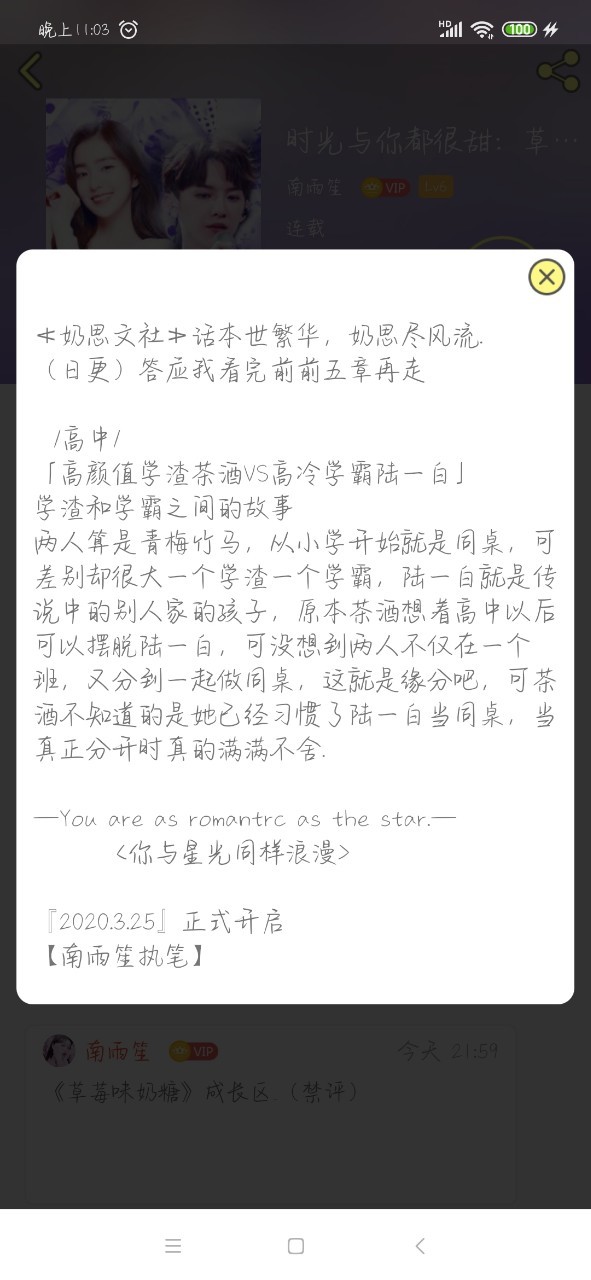 晚上11:03
HD
100
时光与你都很甜：草…
南雨笙 VIP Lv6
连载
≮奶思文社≯话本世繁华，奶思尽风流.
（日更）答应我看完前前五章再走
/高中/
「高颜值学渣茶酒VS高冷学霸陆一白」
学渣和学霸之间的故事
两人算是青梅竹马，从小学开始就是同桌，可
差别却很大一个学渣一个学霸，陆一白就是传
说中的别人家的孩子，原本茶酒想着高中以后
可以摆脱陆一白，可没想到两人不仅在一个
班，又分到一起做同桌，这就是缘分吧，可茶
酒不知道的是她已经习惯了陆一白当同桌，当
真正分开时真的满满不舍.
—You are as romantrc as the star.—
<你与星光同样浪漫>
『2020.3.25』正式开启
【南雨笙执笔】
南雨笙 VIP 今天 21:59
《草莓味奶糖》成长区.（禁评）